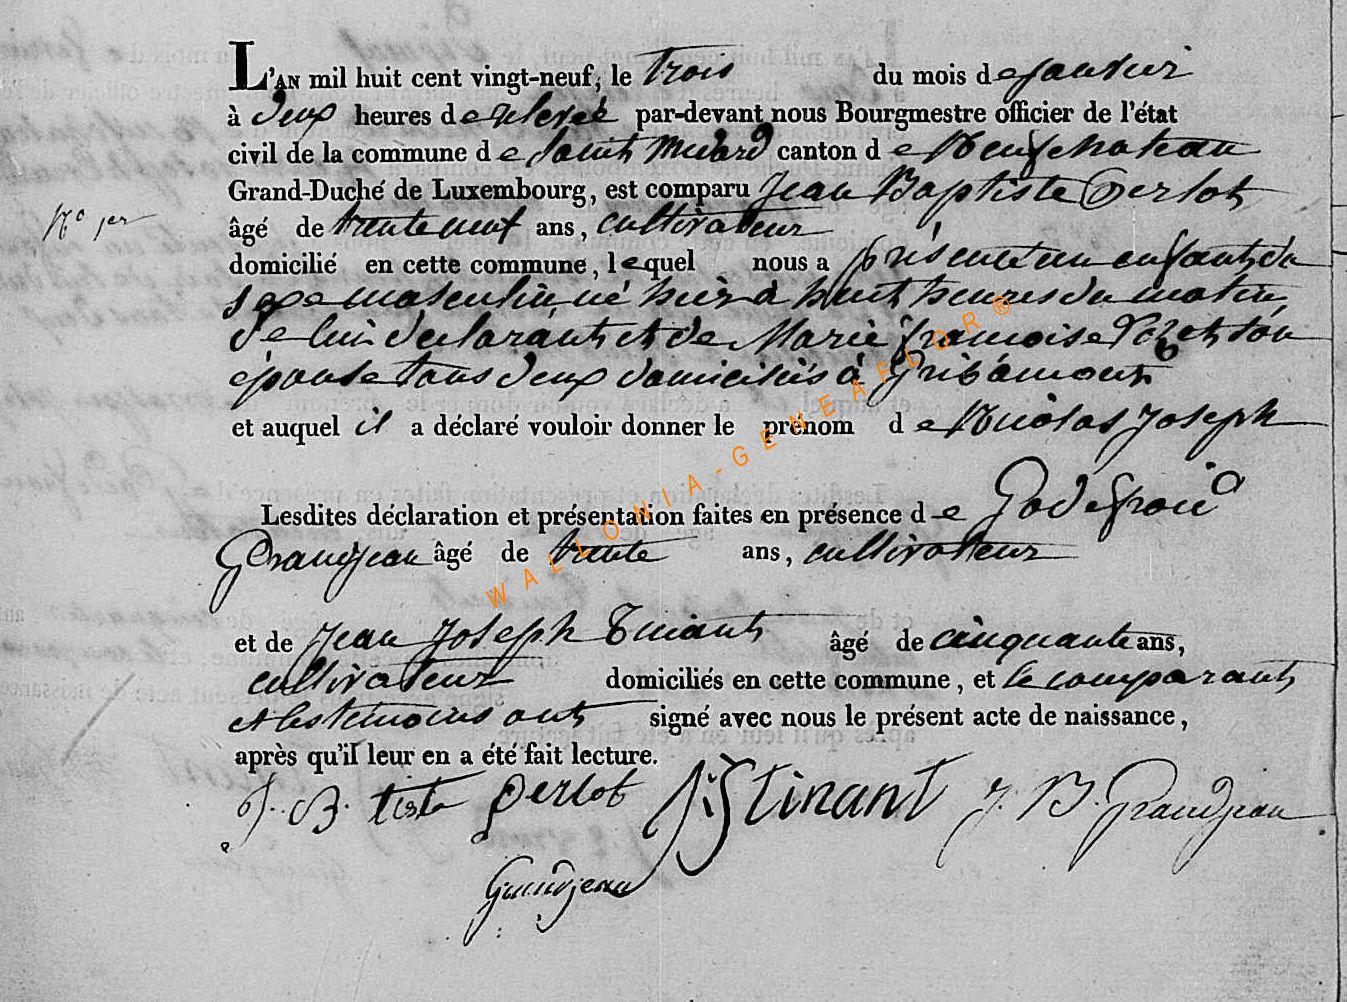 L'AN mil huit cent vingt-neuf, le trois du mois de janvier
à deux heures de relevée par-devant nous Bourgmestre officier de l'état
civil de la commune de Saint Médard canton de Neufchateau
Grand-Duché de Luxembourg, est comparu Jean Baptiste Perlot
N° 1er
âgé de trente neuf ans, cultivateur
domicilié en cette commune, lequel nous a présenté un enfant du
sexe masculin né hier à huit heures du matin
de lui déclarant et de Marie françoise son
épouse tous deux domiciliés à Gribômont
et auquel il a déclaré vouloir donner le prénom de Nicolas Joseph
Lesdites déclaration et présentation faites en présence de Godefroid
Grandjean âgé de trente ans, cultivateur
et de Jean Joseph Tinant âgé de cinquante ans,
cultivateur domiciliés en cette commune, et le comparant
et les témoins ont signé avec nous le présent acte de naissance,
après qu'il leur en a été fait lecture.
J. B. tiste Perlot J: J Tinant J. B. Grandjean
Grandjean
WALLONIA-GENEAFLOR®